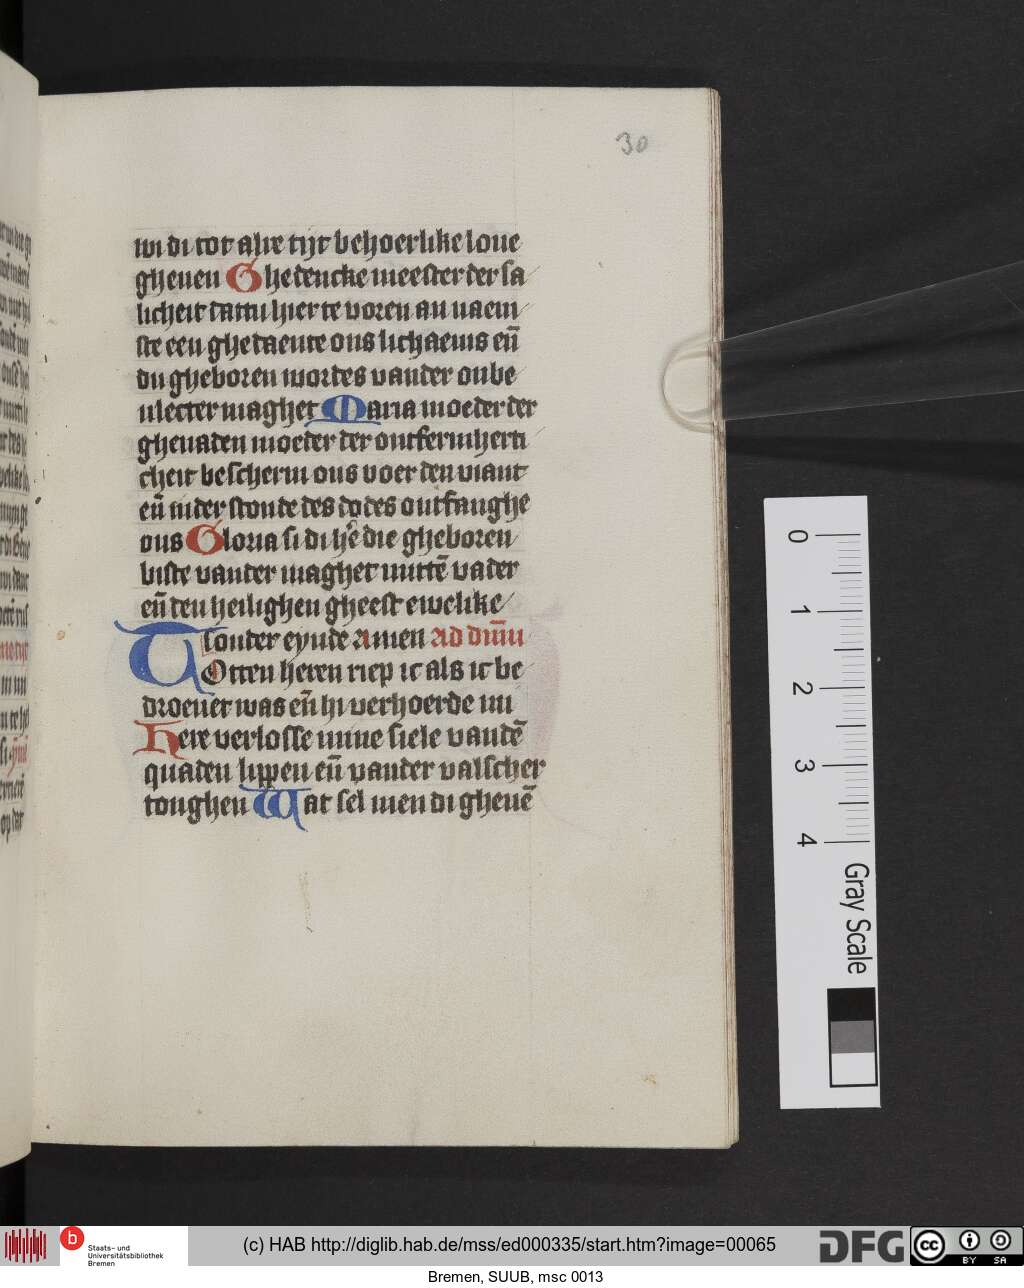 30
wi di tot alre tijt behoerlike loue
gheuen Ghedencke meester der sa
licheit dattu hier te voren an naem
ste een ghedaente ons lichaems en̄
du gheboren wordes vander onbe
ulecter maghet Maria moeder der
ghenaden moeder der ontfermherti
cheit bescherm ons voer den viant
en̄ in der stonde des dodes ontfanghe
ons Gloria si di he᷑ die gheboren
biste vander maghet mittē vader
en̄ den heilighen gheest ewelike
sonder eynde amen ad dn̄m
TOtten heren riep ic als ic be
droeuet was en̄ hi verhoerde mi
Here verlosse mine siele vandē
quaden lippen en̄ vander valscher
tonghen Wat sel men di gheuē
0
1
2
3
4
Gray Scale
b
Staats- und
Universitätsbibliothek
Bremen
(c) HAB http://diglib.hab.de/mss/ed000335/start.htm?image=00065
DFG
cc
BY SA
Bremen, SUUB, msc 0013